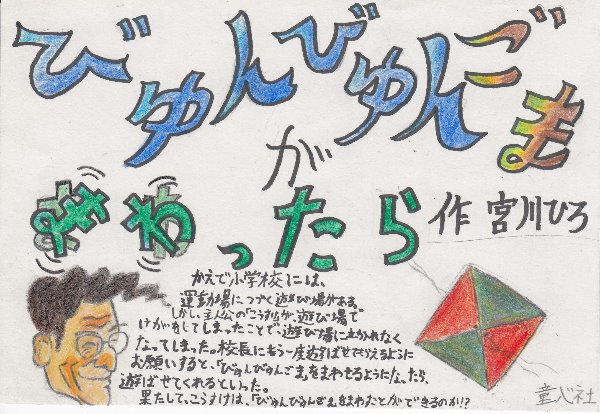 びゅんびゅんごま
が
まわったら
作 宮川ひろ
かえで小学校には、
運動場につづく遊び場がある。
しかし、主人公の「こうすけ」が、遊び場で
けがをしてしまったことで遊び場に行かれなく
なってしまった。校長にもう一度遊ばせてもらえるように
お願いすると、「びゅんびゅんごま」をまわせるようになったら、
遊ばせてくれるといった。
果たして、こうすけは、「びゅんびゅんごま」をまわすことができるのか!?
童心社